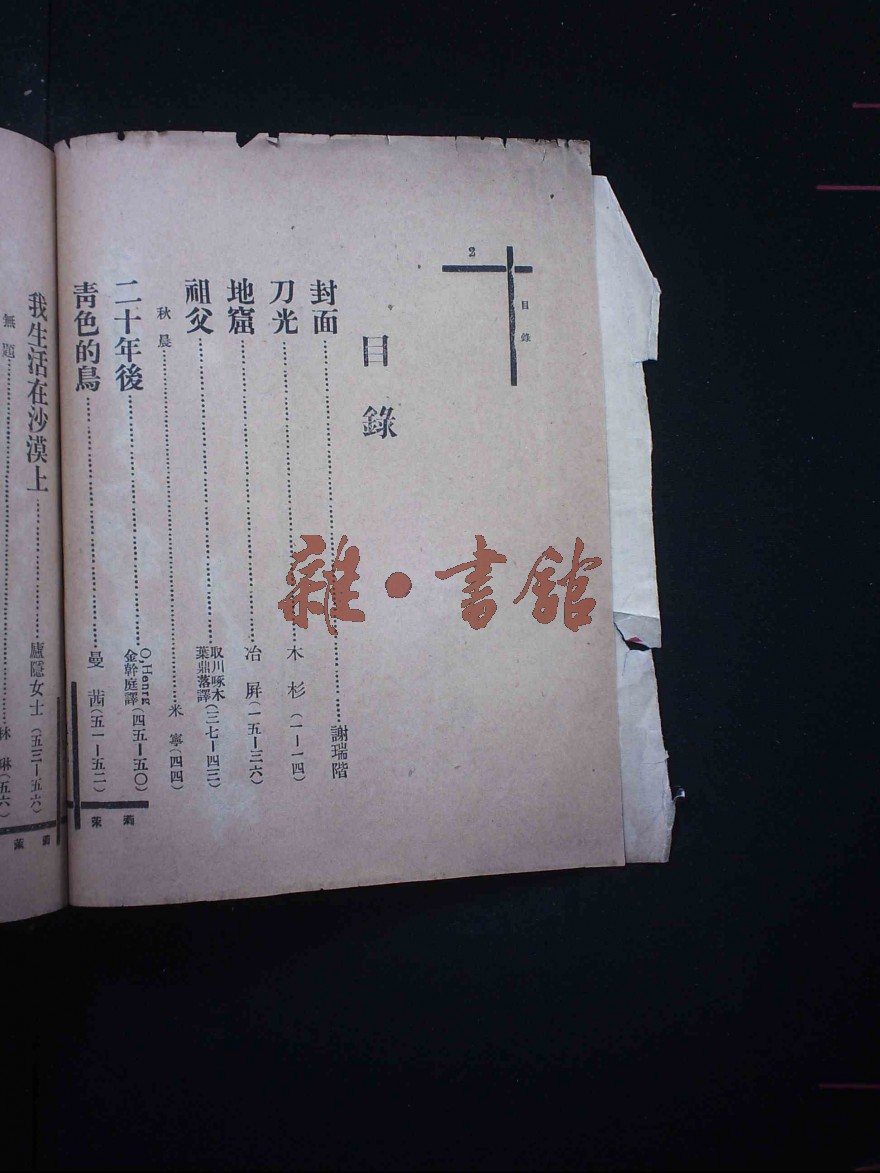 2
目錄
目錄
封面……謝瑞階
刀光……木杉（一—一四）
地窟……冶屏（一五—三六）
祖父……取川啄木 葉鼎落譯（三七—四三）
秋晨……米寧（四四）
二十年後……O,Henrg 金幹庭譯（四五—五〇）
青色的鳥……曼茜（五一—五二）
我生活在沙漠上……廬隱女士（五三—五六）
無題……林琳（五六）
雜·書館